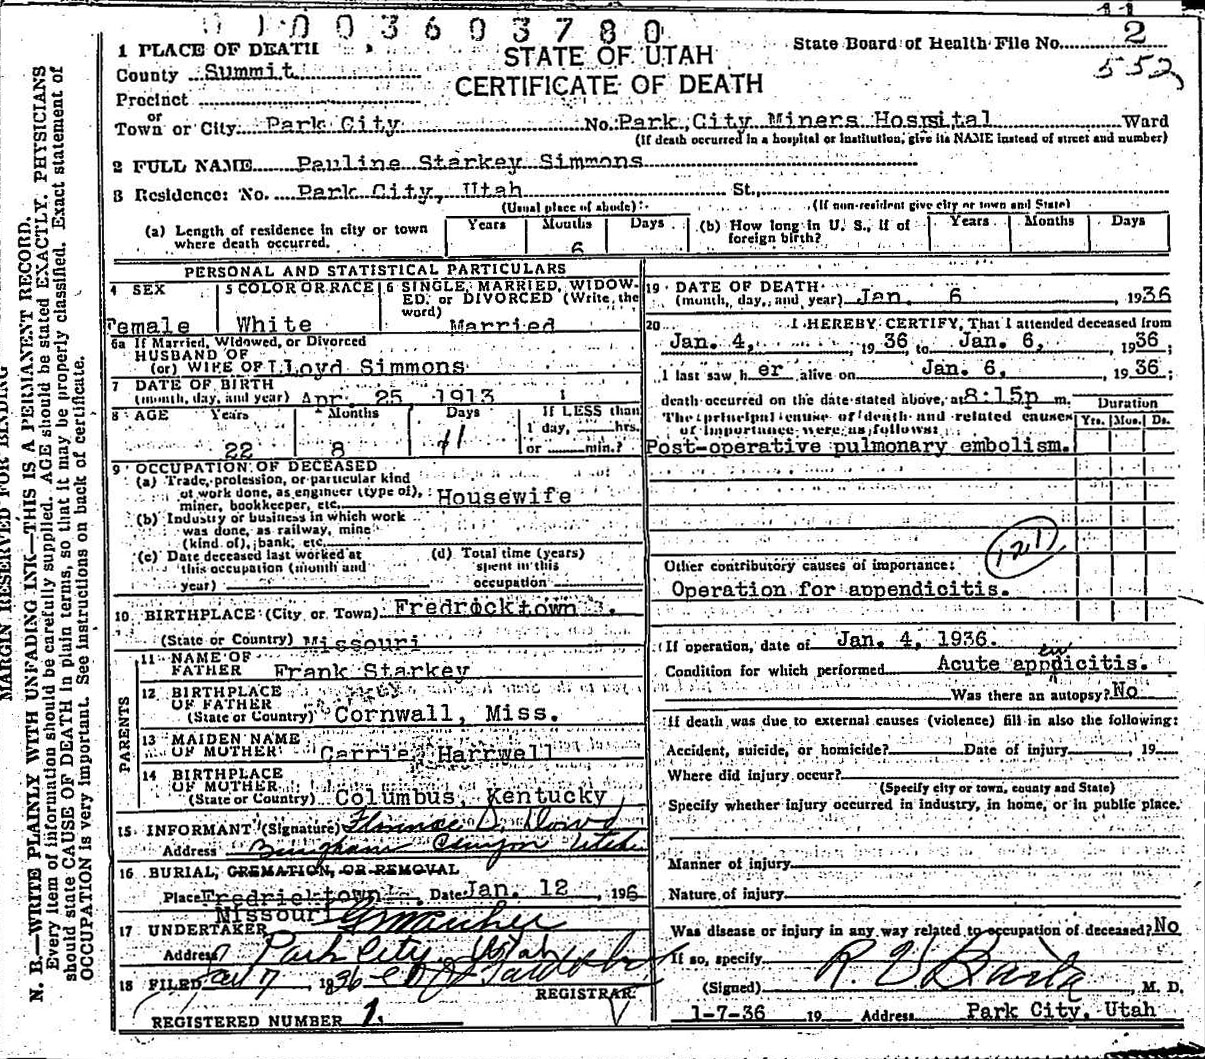 01003603780
1 PLACE OF DEATH
STATE OF UTAH
CERTIFICATE OF DEATH
State Board of Health File No. 2
552
County Summit
Precinct
or
Town or City Park City No. Park City Miners Hospital Ward
(If death occurred in a hospital or institution, give its NAME instead of street and number)
2 FULL NAME Pauline Starkey Simmons
3 Residence: No. Park City, Utah St.,
(Usual place of abode) (If non-resident give city or town and State)
(a) Length of residence in city or town where death occurred. Years Months 6 Days (b) How long in U. S., if of foreign birth? Years Months Days
PERSONAL AND STATISTICAL PARTICULARS
4 SEX 5 COLOR OR RACE 6 SINGLE, MARRIED, WIDOWED, or DIVORCED (Write the word)
Female White Married
6a If Married, Widowed, or Divorced
HUSBAND OF
(or) WIFE OF Lloyd Simmons
7 DATE OF BIRTH
(month, day, and year) Apr. 25 1913
8 AGE Years Months Days If LESS than
1 day, hrs.
22 8 11 or min.?
9 OCCUPATION OF DECEASED
(a) Trade, profession, or particular kind
of work done, as engineer (type of),
miner, bookkeeper, etc. Housewife
(b) Industry or business in which work
was done, as railway, mine
(kind of), bank, etc.
(c) Date deceased last worked at
this occupation (month and
year)
(d) Total time (years)
spent in this
occupation
10 BIRTHPLACE (City or Town) Fredricktown
(State or Country) Missouri
PARENTS
11 NAME OF
FATHER Frank Starkey
12 BIRTHPLACE
OF FATHER
(State or Country) Cornwall, Miss.
13 MAIDEN NAME
OF MOTHER Carrie Harrwell
14 BIRTHPLACE
OF MOTHER
(State or Country) Columbus, Kentucky
15 INFORMANT (Signature) Florence D.
Address Bingham Canyon Utah
16 BURIAL, CREMATION, OR REMOVAL
Place Fredricktown Date Jan. 12, 1936
Missouri
17 UNDERTAKER
Address Park City, Utah
18 FILED Jan 7, 1936
REGISTRAR
REGISTERED NUMBER 1
19 DATE OF DEATH
(month, day, and year) Jan. 6, 1936
20 I HEREBY CERTIFY, That I attended deceased from
Jan. 4, 1936, to Jan. 6, 1936;
I last saw her alive on Jan. 6, 1936;
death occurred on the date stated above, at 8:15p m.
The principal cause of death and related causes
of importance were as follows:
Duration
Yrs. Mos. Ds.
Post-operative pulmonary embolism.
121
Other contributory causes of importance:
Operation for appendicitis.
If operation, date of Jan. 4, 1936.
en
Condition for which performed Acute appdicitis.
Was there an autopsy? No
If death was due to external causes (violence) fill in also the following:
Accident, suicide, or homicide? Date of injury, 19
Where did injury occur?
(Specify city or town, county and State)
Specify whether injury occurred in industry, in home, or in public place.
Manner of injury
Nature of injury
Was disease or injury in any way related to occupation of deceased? No
If so, specify
(Signed) R. V. , M. D.
1-7-36 19 Address Park City, Utah
MARGIN RESERVED FOR BINDING
N. B.—WRITE PLAINLY WITH UNFADING INK—THIS IS A PERMANENT RECORD.
Every item of information should be carefully supplied. AGE should be stated EXACTLY. PHYSICIANS
should state CAUSE OF DEATH in plain terms, so that it may be properly classified. Exact statement of
OCCUPATION is very important. See instructions on back of certificate.